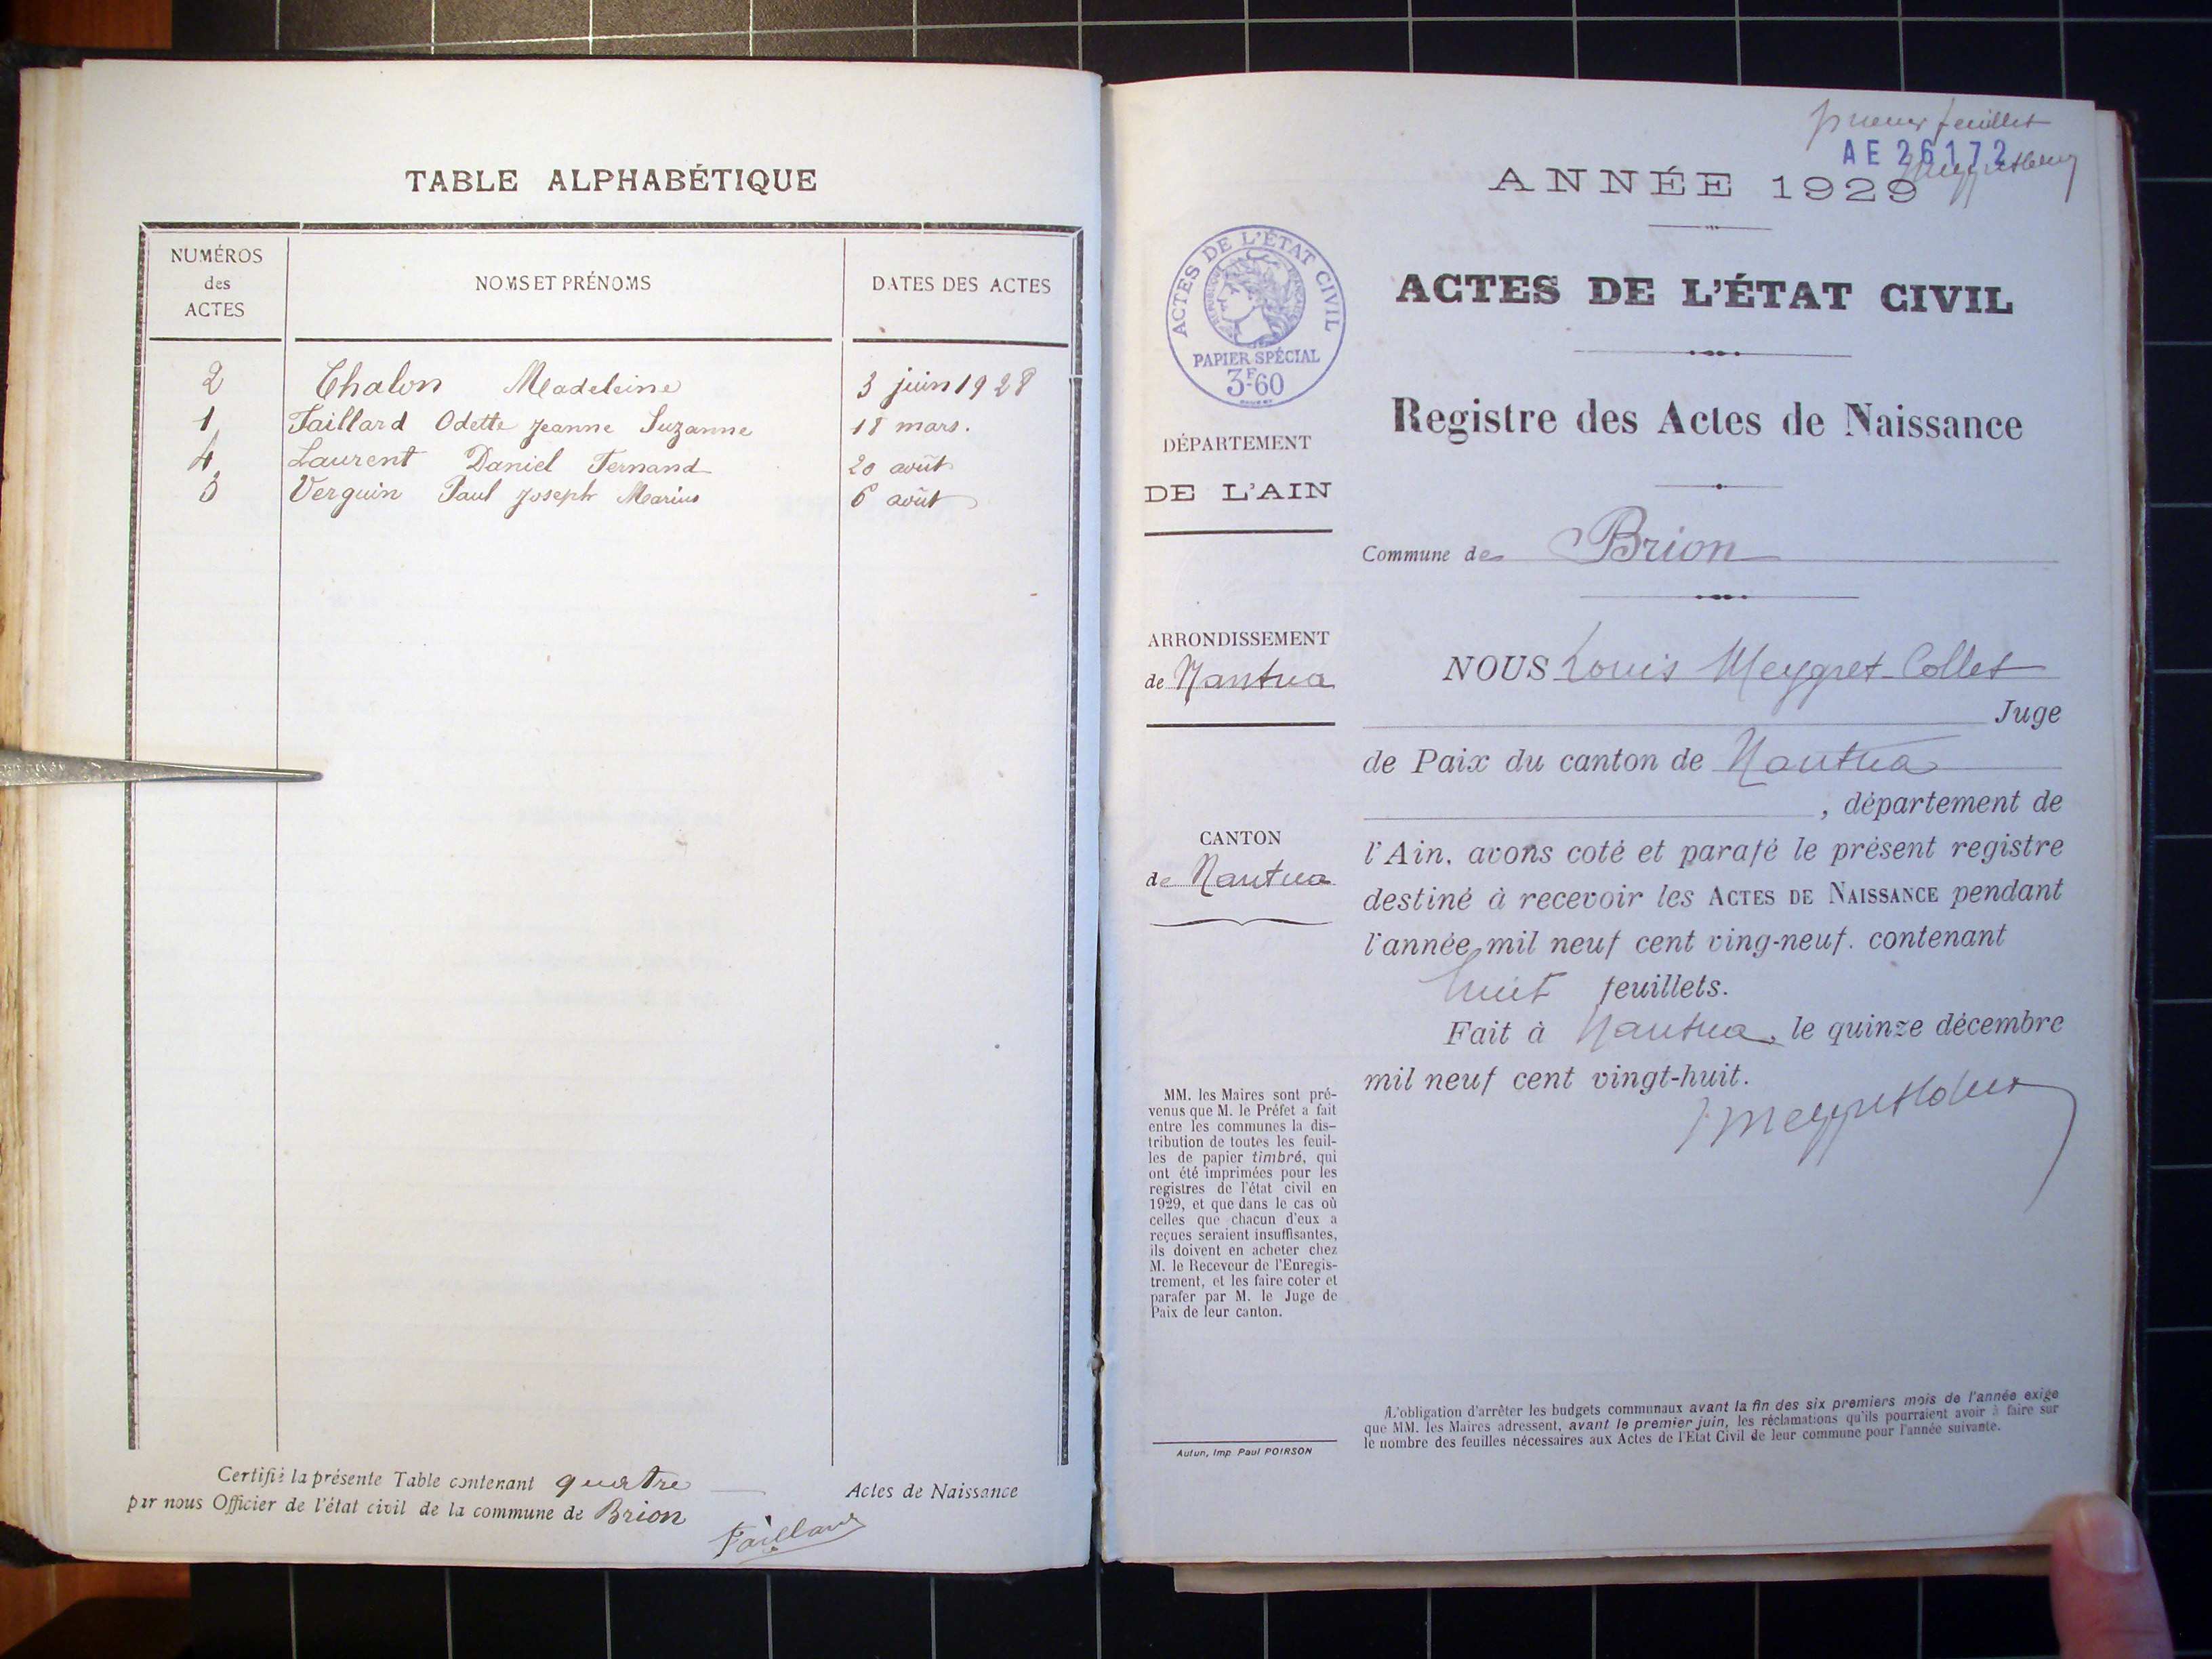 TABLE ALPHABÉTIQUE
NUMÉROS
des
ACTES
NOMS ET PRÉNOMS
DATES DES ACTES
2 Chalon Madeleine 3 juin 1928
1 Faillard Odette Jeanne Suzanne 18 mars.
4 Laurent Daniel Fernand 20 août
3 Verguin Paul Joseph Marius 6 août
Certifié la présente Table contenant quatre Actes de Naissance
par nous Officier de l'état civil de la commune de Brion
Faillard
premier feuillet
AE 26172
ANNÉE 1929
ACTES DE L'ÉTAT CIVIL
RÉPUBLIQUE FRANÇAISE
PAPIER SPÉCIAL
3F.60
ACTES DE L'ÉTAT CIVIL
Registre des Actes de Naissance
DÉPARTEMENT
DE L'AIN
Commune de Brion
ARRONDISSEMENT
de Nantua
CANTON
de Nantua
NOUS Louis Meygret-Collet
Juge
de Paix du canton de Nantua
, département de
l'Ain, avons coté et parafé le présent registre
destiné à recevoir les ACTES DE NAISSANCE pendant
l'année mil neuf cent ving-neuf. contenant
huit feuillets.
Fait à Nantua, le quinze décembre
mil neuf cent vingt-huit.
MM. les Maires sont pré-
venus que M. le Préfet a fait
entre les communes la dis-
tribution de toutes les feuil-
les de papier timbré, qui
ont été imprimées pour les
registres de l'état civil en
1929, et que dans le cas où
celles que chacun d'eux a
reçues seraient insuffisantes,
ils doivent en acheter chez
M. le Receveur de l'Enregis-
trement, et les faire coter et
parafer par M. le Juge de
Paix de leur canton.
Autun, Imp. Paul POIRSON
L'obligation d'arrêter les budgets communaux avant la fin des six premiers mois de l'année exige
que MM. les Maires adressent, avant le premier juin, les réclamations qu'ils pourraient avoir à faire sur
le nombre des feuilles nécessaires aux Actes de l'Etat Civil de leur commune pour l'année suivante.